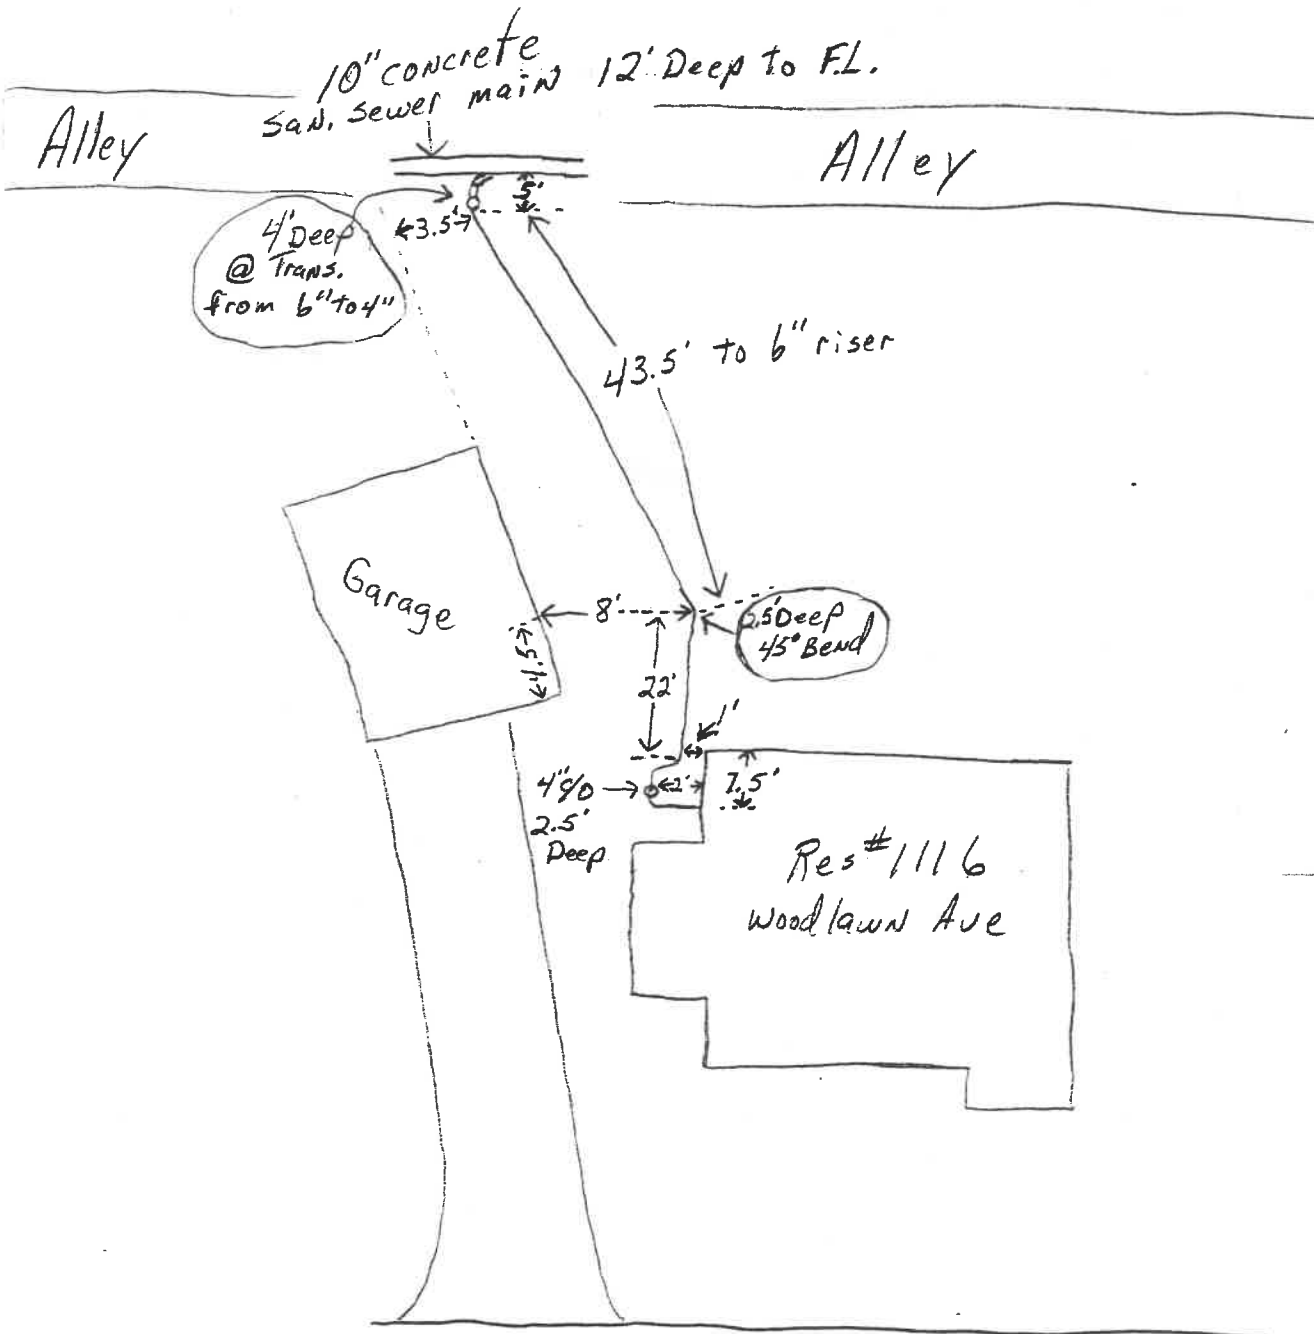 10" concrete
San. Sewer main 12' Deep to F.L.
Alley
Alley
5'
3.5'
4' Deep
@ Trans.
from 6" to 4"
43.5' to 6" riser
Garage
8'
2.5' Deep
45° Bend
4.5'
22'
1'
4" c/o
2.5'
Deep
2'
7.5'
Res #1116
Woodlawn Ave